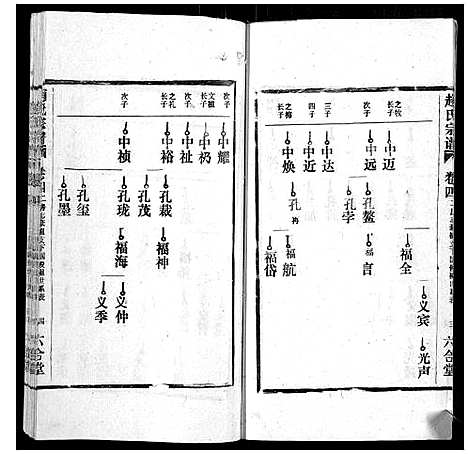 赵氏宗谱
卷四
六合堂
之牧长子
中迈
次子
中远
三子
中达
四子
中近
之梅长子
中焕
孔鳌
孔孝
孔
福全
福言
福航
福岱
义宾
光声
中耀
文植次子
中礽
中祉
之礼长子
中裕
次子
中祯
孔裁
孔茂
孔珑
孔玺
孔墨
福神
福海
义仲
义季
六合堂